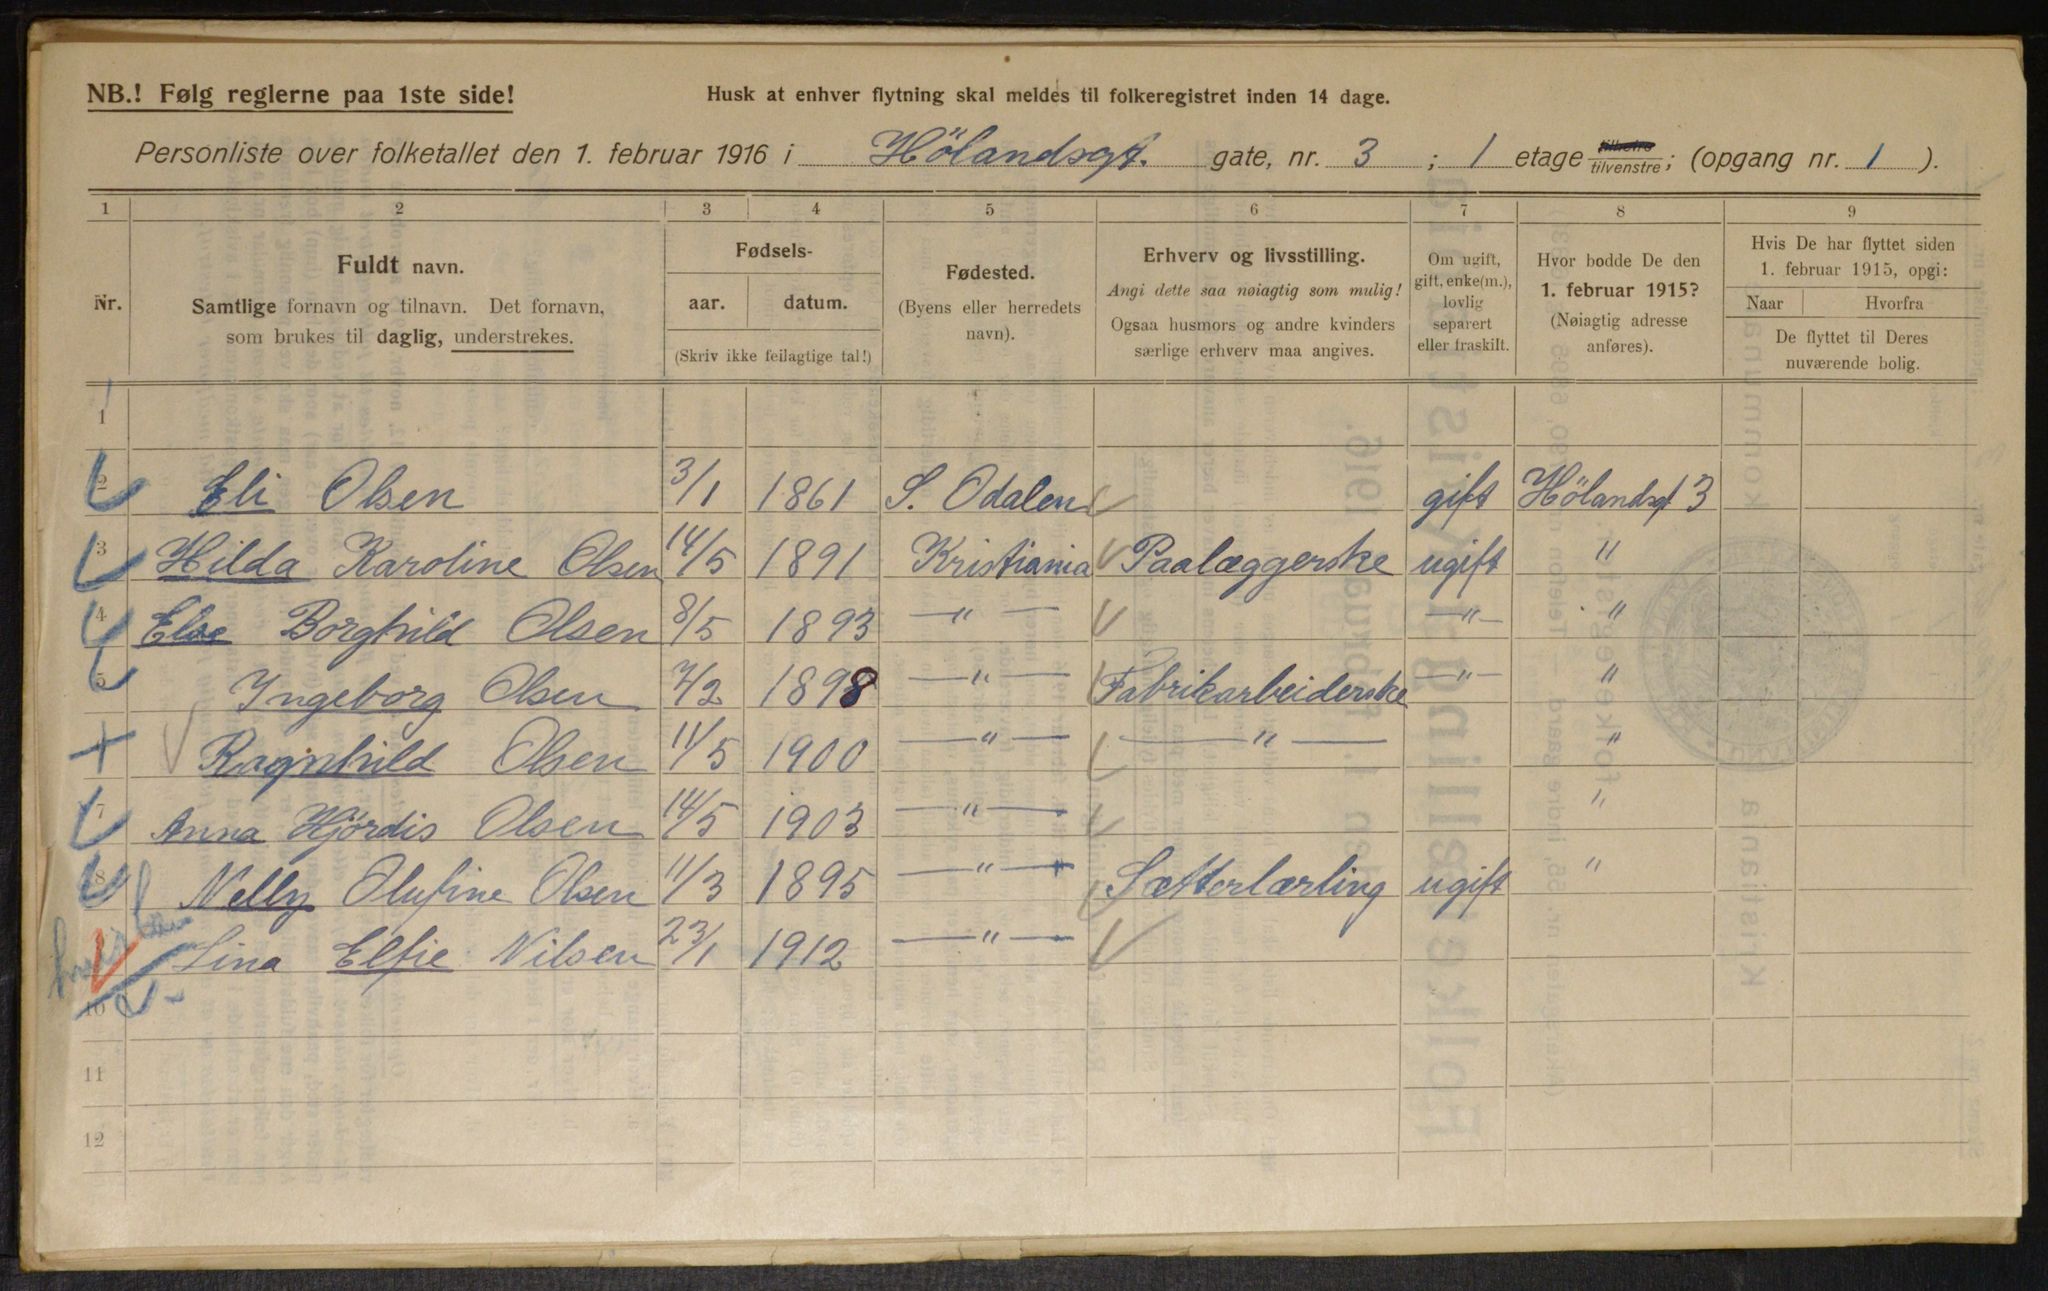 NB.! Følg reglerne paa 1ste side!
Husk at enhver flytning skal meldes til folkeregistret inden 14 dage.
Personliste over folketallet den 1. februar 1916 i Hölandsgt. gate, nr. 3 ; 1 etage tilhøire tilvenstre; (opgang nr. 1 ).
1 2 3 4 5 6 7 8 9
Nr.
Fuldt navn.
Samtlige fornavn og tilnavn. Det fornavn,
som brukes til daglig, understrekes.
Fødsels-
aar. datum.
(Skriv ikke feilagtige tal!)
Fødested.
(Byens eller herredets
navn).
Erhverv og livsstilling.
Angi dette saa nøiagtig som mulig!
Ogsaa husmors og andre kvinders
særlige erhverv maa angives.
Om ugift,
gift, enke(m.),
lovlig
separert
eller fraskilt.
Hvor bodde De den
1. februar 1915?
(Nøiagtig adresse
anføres).
Hvis De har flyttet siden
1. februar 1915, opgi:
Naar Hvorfra
De flyttet til Deres
nuværende bolig.
1
2 Eli Olsen 3/1 1861 S. Odalen gift Hölandsgt 3
3 Hilda Karoline Olsen 14/5 1891 Kristiania Paalæggerske ugift "
4 Else Borghild Olsen 8/5 1893 — " — — " — "
5 Ingeborg Olsen 7/2 1898 — " — Fabrikarbeiderske — " — "
Ragnhild Olsen 11/5 1900 — " — — " — "
7 Anna Hjördis Olsen 14/5 1903 — " — "
8 Nelly Olufine Olsen 11/3 1895 — " — Sætterlærling ugift "
Lina Elfie Nilsen 23/1 1912 — " —
10
11
12